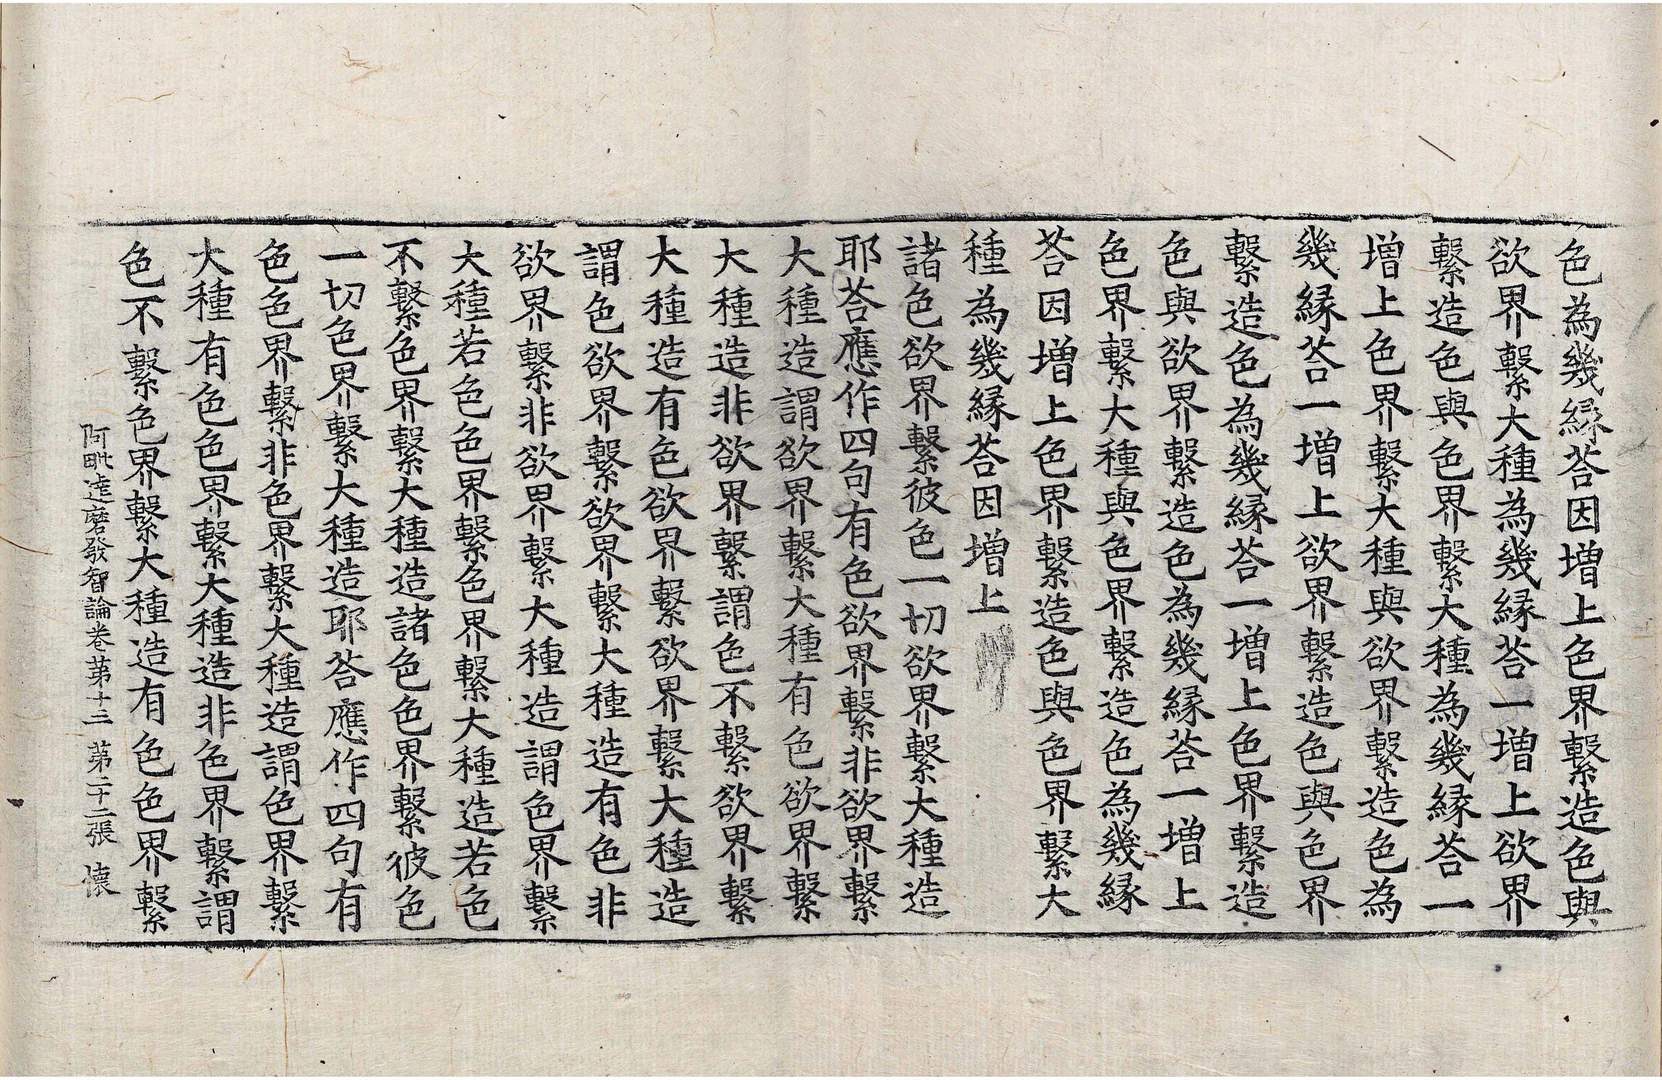 色為幾縁荅因増上色界繫造色與
欲界繫大種為幾縁荅一増上欲界
繫造色與色界繫大種為幾縁荅一
増上色界繫大種與欲界繫造色為
幾縁荅一増上欲界繫造色與色界
繫造色為幾縁荅一増上色界繫造
色與欲界繫造色為幾縁荅一増上
色界繫大種與色界繫造色為幾縁
荅因増上色界繫造色與色界繫大
種為幾縁荅因増上
諸色欲界繫彼色一切欲界繫大種造
耶荅應作四句有色欲界繫非欲界繫
大種造謂欲界繫大種有色欲界繫
大種造非欲界繫謂色不繫欲界繫
大種造有色欲界繫欲界繫大種造
謂色欲界繫欲界繫大種造有色非
欲界繫非欲界繫大種造謂色界繫
大種若色色界繫色界繫大種造若色
不繫色界繫大種造諸色色界繫彼色
一切色界繫大種造耶荅應作四句有
色色界繫非色界繫大種造謂色界繫
大種有色色界繫大種造非色界繫謂
色不繫色界繫大種造有色色界繫
阿毗達磨發智論卷第十三 第二十二張 懷